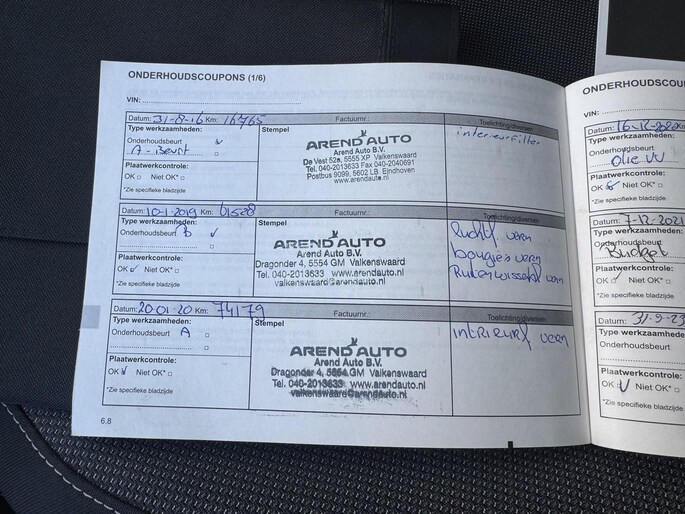 ONDERHOUDSCOUPONS (1/6)
VIN:
Datum: 31-8-16 Km: 16765 Factuurnr.: Toelichting/diversen
Type werkzaamheden: Stempel interieurfilter
Onderhoudsbeurt
A-Beurt
AREND AUTO
Arend Auto B.V.
De Vest 52a, 5555 XP Valkenswaard
Tel. 040-2013633 Fax 040-2040691
Postbus 9099, 5602 LB Eindhoven
www.arendauto.nl
Plaatwerkcontrole:
OK Niet OK*
*Zie specifieke bladzijde
Datum: 10-1-2019 Km: 61528 Factuurnr.: Toelichting/diversen
Type werkzaamheden: Stempel
Onderhoudsbeurt B
AREND AUTO
Arend Auto B.V.
Dragonder 4, 5554 GM Valkenswaard
Tel. 040-2013633 www.arendauto.nl
valkenswaard@arendauto.nl
Luchtf vern
bougies vern
Ruitenwisserbl vern
Plaatwerkcontrole:
OK Niet OK*
*Zie specifieke bladzijde
Datum: 20-01-20 Km: 74179 Factuurnr.: Toelichting/diversen
Type werkzaamheden: Stempel
Onderhoudsbeurt A
AREND AUTO
Arend Auto B.V.
Dragonder 4, 5554 GM Valkenswaard
Tel. 040-2013633 www.arendauto.nl
valkenswaard@arendauto.nl
intrieurf vern
Plaatwerkcontrole:
OK Niet OK*
*Zie specifieke bladzijde
6.8
ONDERHOUDSCOU
VIN:
Datum: 16-12-2020
Type werkzaamheden:
Onderhoudsbeurt
Olie VV
Plaatwerkcontrole:
OK Niet OK*
*Zie specifieke bladzijde
Datum: 7-12-2021
Type werkzaamheden:
Onderhoudsbeurt
Budget
Plaatwerkcontrole:
OK Niet OK*
*Zie specifieke bladzijde
Type werkzaamheden:
Onderhoudsbeurt
Plaatwerkcontrole:
OK Niet OK*
*Zie specifieke bladzijde